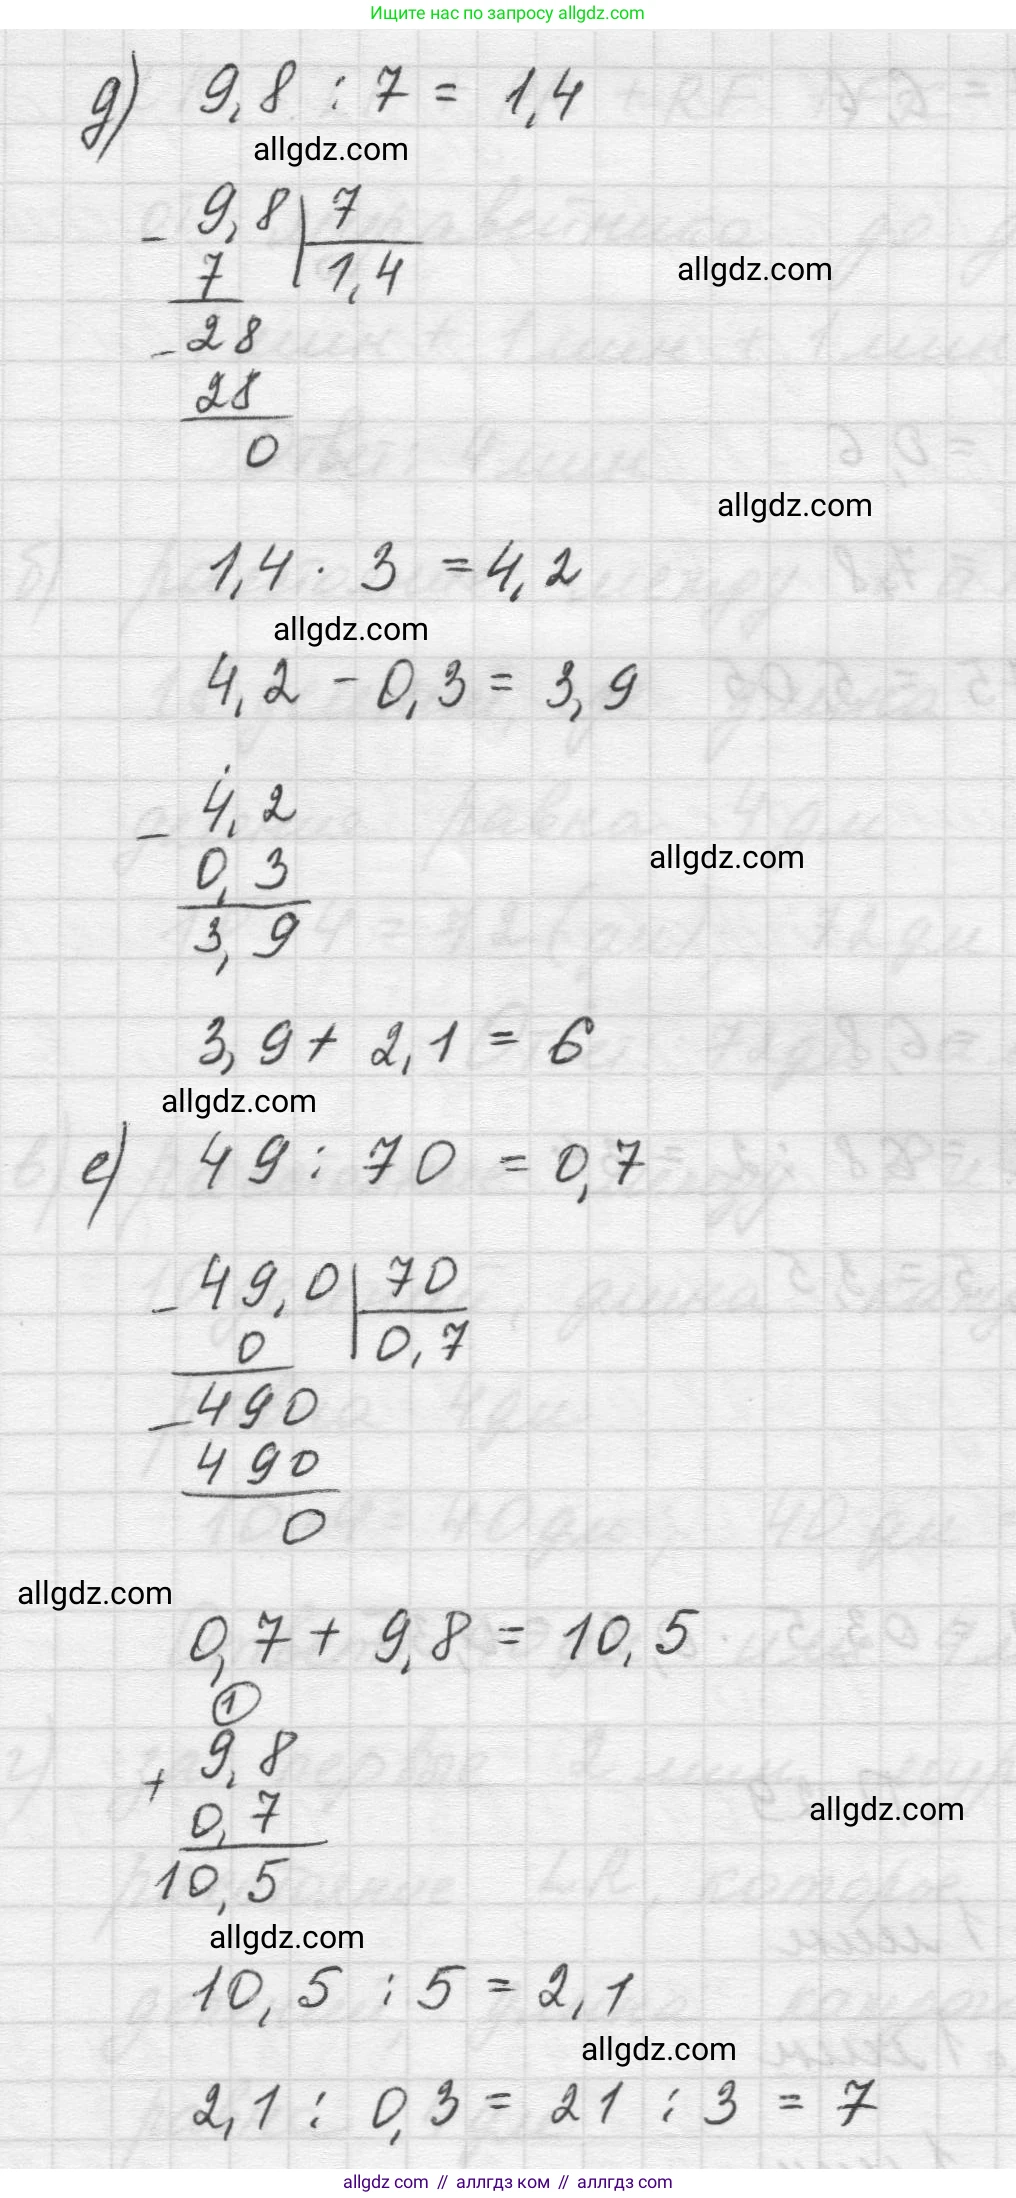 Ищите нас по запросу allgdz.com
д) 9,8 : 7 = 1,4
allgdz.com
- 9,8 | 7
7 1,4
allgdz.com
- 28
28
0
allgdz.com
1,4 · 3 = 4,2
allgdz.com
4,2 - 0,3 = 3,9
- 4,2
0,3
allgdz.com
3,9
3,9 + 2,1 = 6
allgdz.com
е) 49 : 70 = 0,7
- 49,0 | 70
0 0,7
- 490
490
0
allgdz.com
0,7 + 9,8 = 10,5
1
+ 9,8
0,7
allgdz.com
10,5
allgdz.com
10,5 : 5 = 2,1
allgdz.com
2,1 : 0,3 = 21 : 3 = 7
allgdz.com // аллгдз ком // аллгдз.com